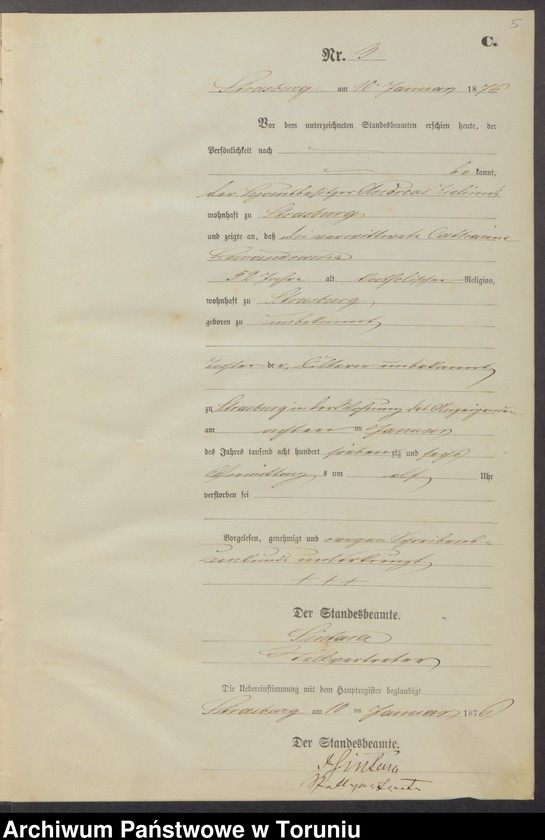 5
C.
Nr. 3
Strasburg am 10n Januar 1876
Vor dem unterzeichneten Standesbeamten erschien heute, der
Persönlichkeit nach
be kannt,
der Grundbesitzer Andreas
wohnhaft zu Strasburg
und zeigte an, daß die verwittwete Catharina
Lewandowska
52 Jahre alt katholischer Religion,
wohnhaft zu Strasburg,
geboren zu unbekannt,
Tochter der, Eltern unbekannt,
zu Strasburg in der Wohnung des Anzeigenden
am achten ten Januar
des Jahres tausend acht hundert siebenzig und sechs
Vormittag s um elf Uhr
verstorben sei
Vorgelesen, genehmigt und wegen Schreibens-
unkunde unterkreuzt
+ + +
Der Standesbeamte.
Stellvertreter
Die Uebereinstimmung mit dem Hauptregister beglaubigt
Strasburg am 10 ten Januar 1876
Der Standesbeamte.
Stellvertreter
Archiwum Państwowe w Toruniu